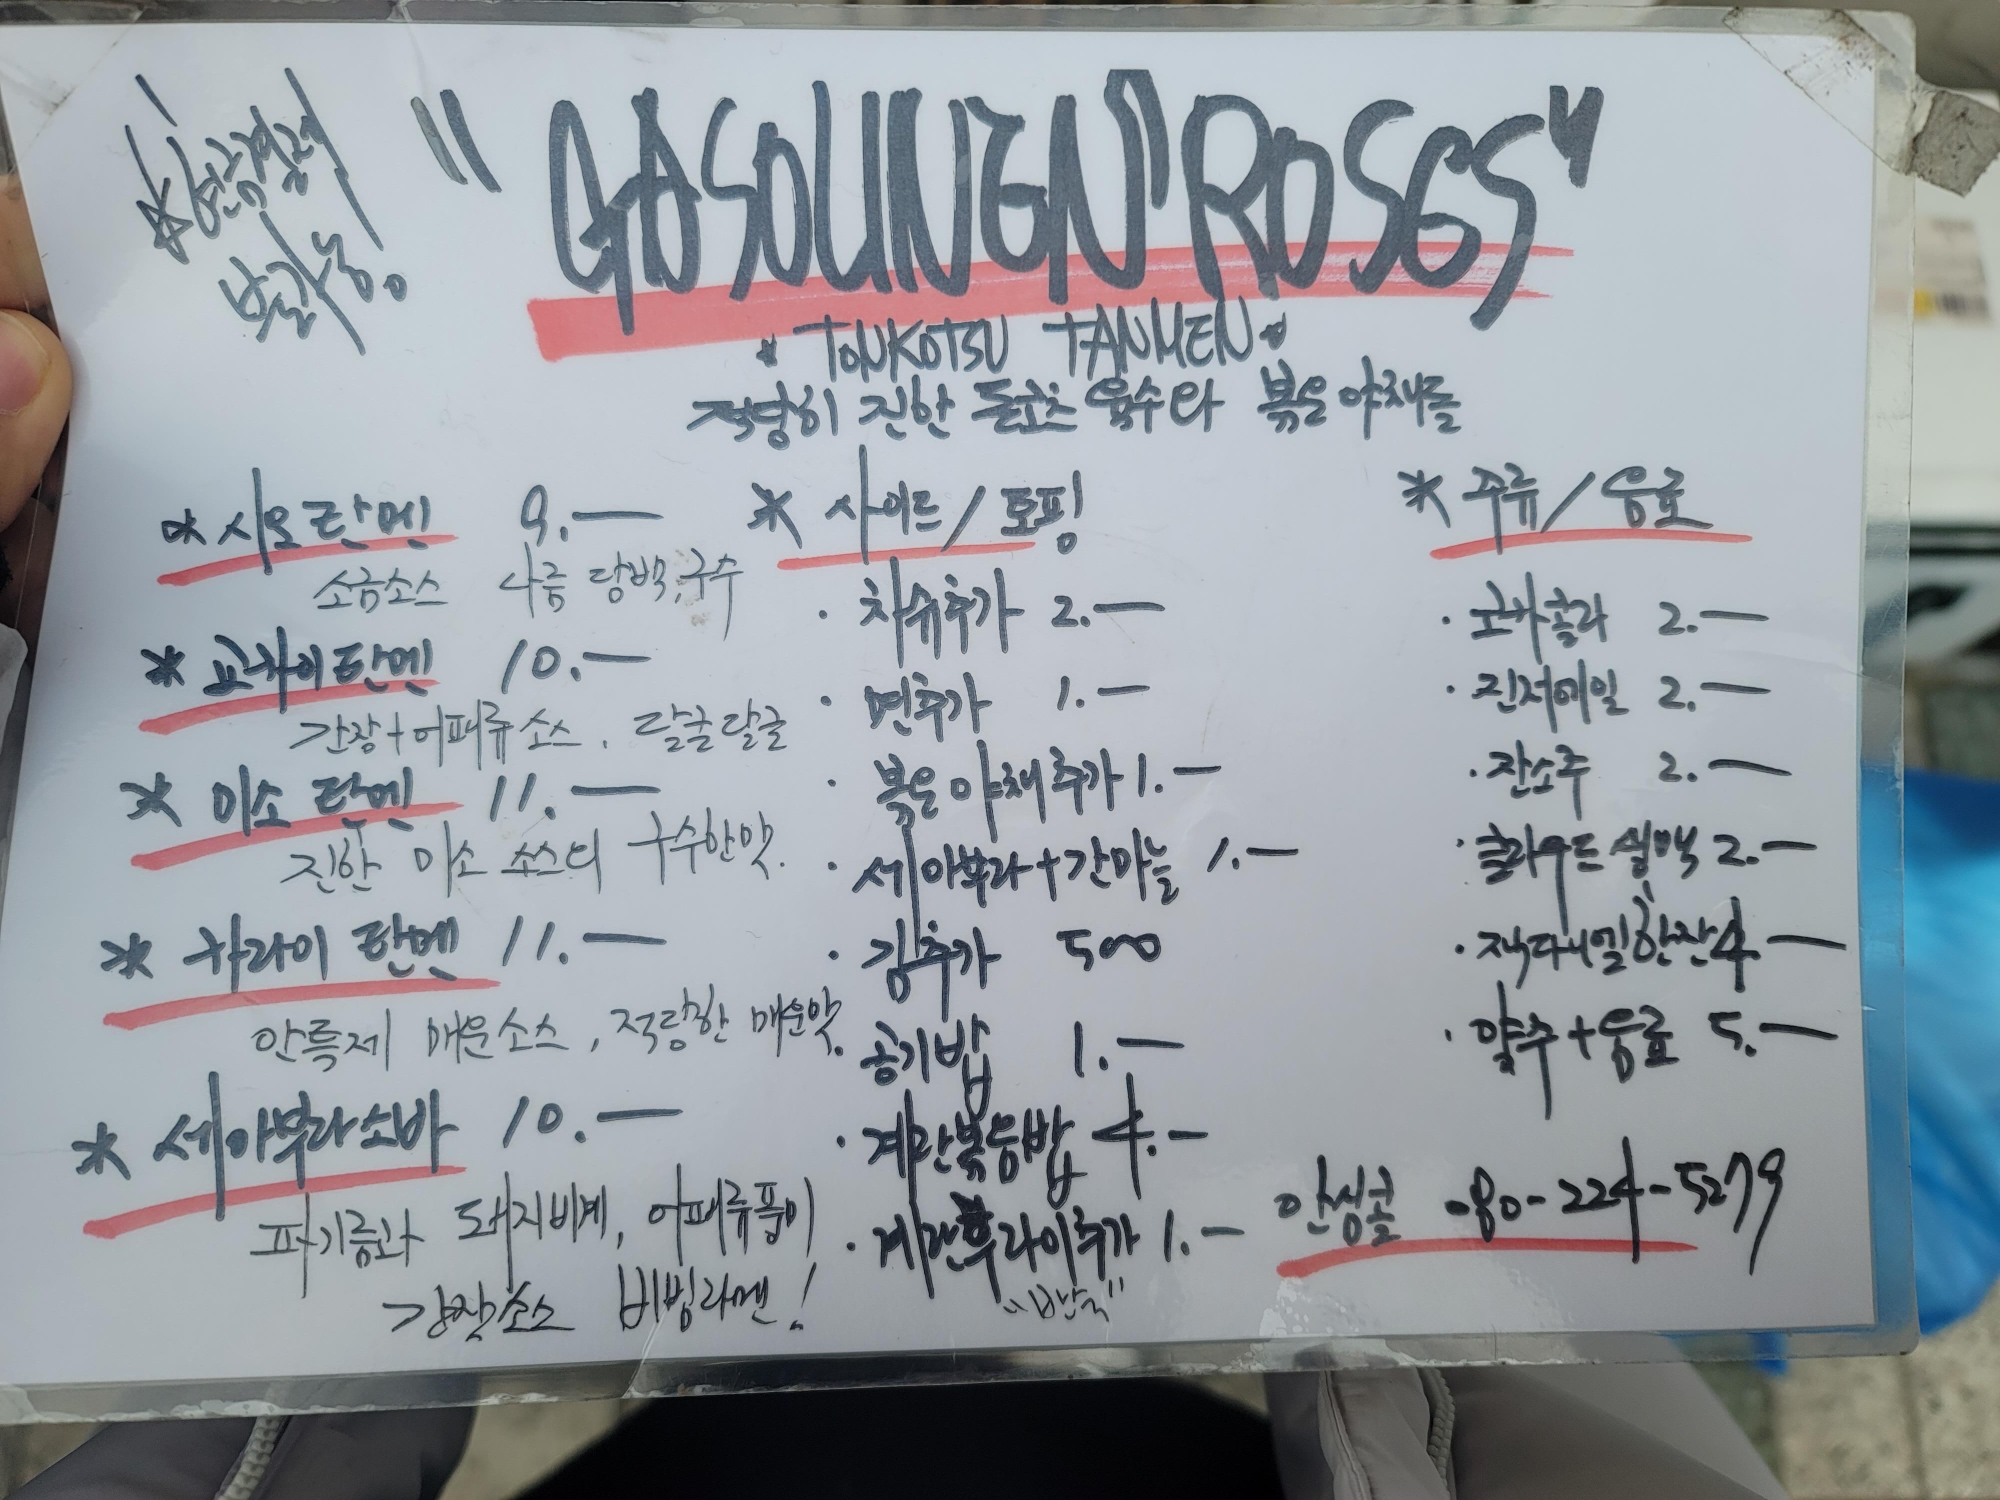 ☆현금결제
보관중.
"GASOLINEN'ROSES"
* TONKOTSU TANMEN *
적당히 진한 돈코츠 육수와 볶은야채들
* 시오탄멘 9.—
소금소스 나름 담백, 구수
* 교카이탄멘 10.—
간장+어패류소스, 달큰달큰
* 미소탄멘 11.—
진한 미소 소스의 구수한맛.
* 카라이 탄멘 11.—
안특제 매운소스, 적당한 매운맛.
* 세아부라소바 10.—
파기름과 돼지비계, 어패류풍미
간장소스 비빔라멘!
* 사이드/토핑
· 차슈추가 2.—
· 면추가 1.—
· 볶은야채추가 1.—
· 세아부라+간마늘 1.—
· 김추가 500
공기밥 1.—
· 계란볶음밥 4.—
· 계란후라이추가 1.—
"반숙"
* 주류/음료
· 코카콜라 2.—
· 진저에일 2.—
· 잔소주 2.—
· 클라우드 실맥 2.—
· 잭다니엘한잔 4.—
· 얄주+음료 5.—
안성콜 080-224-5279